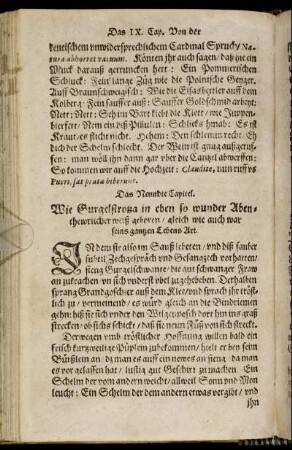 Das IX. Cap. Von der
kenelischem vnwidersprechlichem Cardinal Spruch/ Na-
tura abhorret vacuum. Könten jhr auch sagen/ daß hie ein
Muck darauß getruncken hett: Ein Pommerischen
Schluck: Fein lange Züg wie die Polnische Geyger.
Auff Braunschweigisch: Wie die
Kolberg: Fein sauffer auß: Sauffer Goldschmid arbeyt:
Nett: Nett: Sih im Bart klebt die Klett/
bierfett/ Nem ein diß Pillulen: Schlicks hinab: Es ist
Kraut, es sticht nicht. Hehem: Den schlemm recht: Eh
dich der Schelm schlecht. Der Wein ist gnug außgeruf-
fen: man wöll jhn dann gar vber die Cantzel abwerffen:
So kommen wir auff die Hochzeit: Claudite, nun riff vs
Pueri, sat prata biberunt.
Das Neundte Capitel.
Wie Gurgelstroza in eben so wunder Aben-
thewrlicher weiß geboren/ gleich wie auch war
seins gantzen Lebens Art.
INdem sie also im Sauß lebeten/ vnd diß sauber
subtil Zechgespräch vnd Gesangzech vorhatten/
fieng Gurgelschwante/ die gut schwanger Fraw
an zukrachen vn sich vnderst vbel zuzgeheben. Derhalben
sprang Grandgoschier auß dem Klee/ vnd sprach jhr tröst-
lich zu/ vermeinend/ es würd gleich an die Bindriemen
gehn: hieß sie sich vnder den Wilgenposch dort hin ins graß
strecken/ ob sichs schickt/ daß sie neun Füß von sich streckt.
Derwegen vmb tröstlicher Hoffnung willen bald ein
frisch kurtzweilige Püplein zubekommen/ hielt er bey seim
Bürstlein an da man es auff ein newes an fieng/ da man
es vor gelassen hat/ lustig gut Geschirr zu machen. Ein
Schelm der vom andern weicht/ allweil Sonn vnd Mon
leucht: Ein Schelm der dem andern etwas vergibt/ vnd
jhn